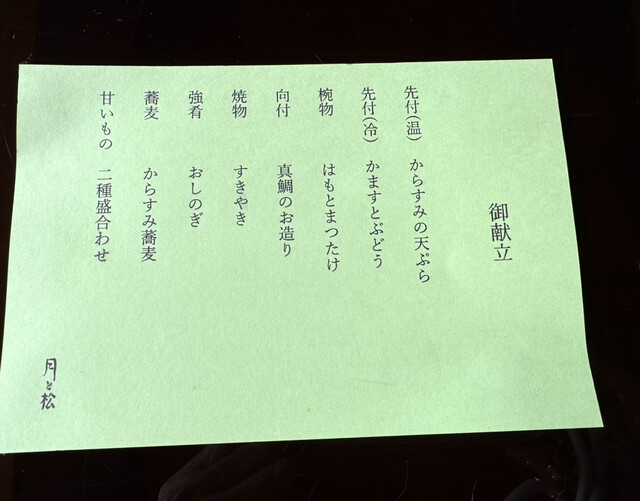 御献立
先付(温) からすみの天ぷら
先付(冷) かますとぶどう
椀物 はもとまつたけ
向付 真鯛のお造り
焼物 すきやき
強肴 おしのぎ
蕎麦 からすみ蕎麦
甘いもの 二種盛合わせ
月と松